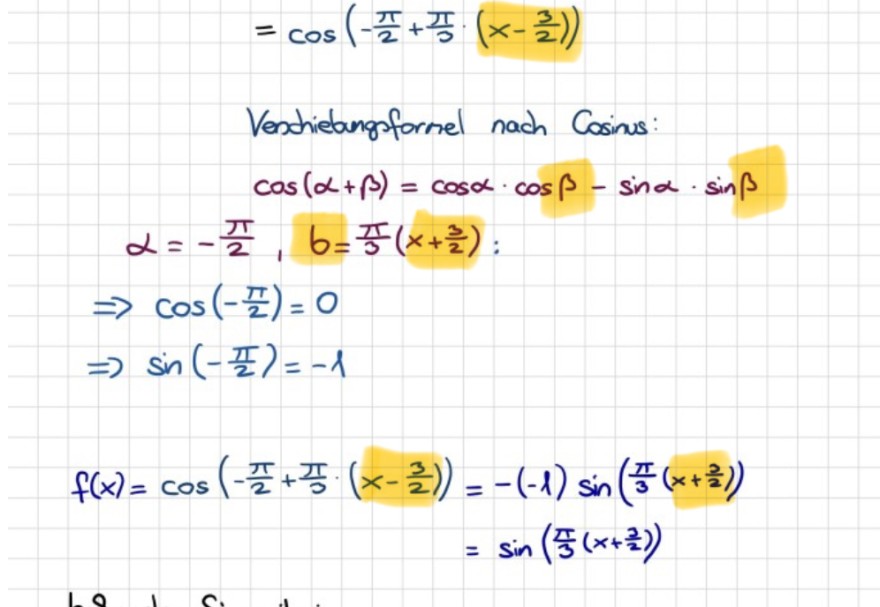 = cos (-π/2 + π/3 · (x - 3/2))
Verschiebungsformel nach Cosinus:
cos(α+β) = cosα · cosβ - sinα · sinβ
α = -π/2 , b = π/3 (x + 3/2) :
=> cos(-π/2) = 0
=> sin(-π/2) = -1
f(x) = cos (-π/2 + π/3 · (x - 3/2)) = -(-1) sin (π/3 (x + 3/2))
= sin (π/3 (x + 3/2))